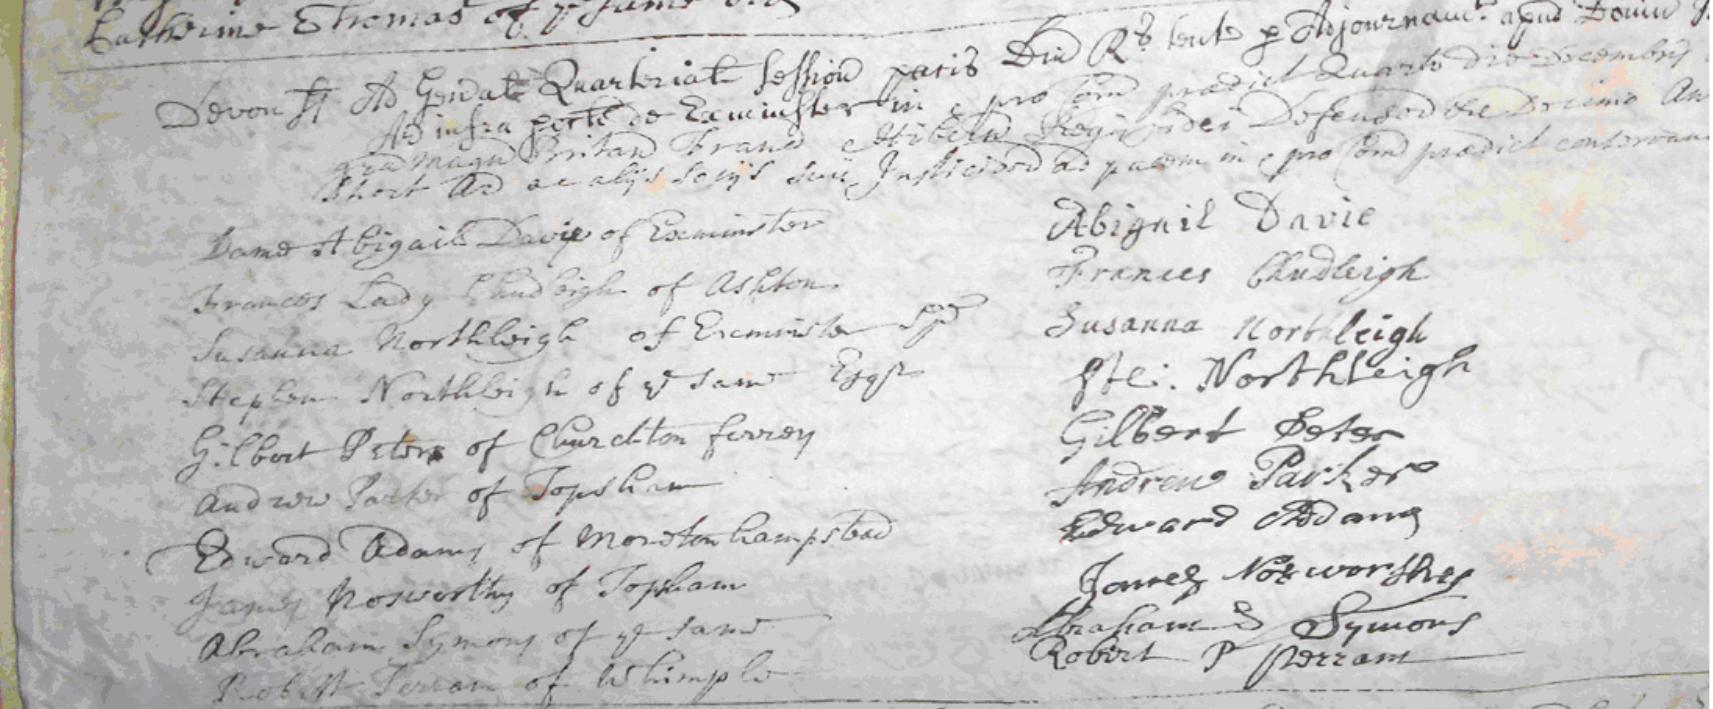 Katherine Thomas of ye same
Devon ss Ad General Quarterial Session pacis Dni Rs tent p Adjournamt apud Domu
Ad infra porte de Exminster in & pro Com predict Quarto die Decembris
Gra Magn Britan Franc & Hibern Regis fidei Defensor &c Decimo An
Short Ar ac alijs Socijs suis Justiciar ad pacem in & pro Com predict conservan
Dame Abigail Davie of Exminster Abigail Davie
Frances Lady Chudleigh of Ashton Frances Chudleigh
Susanna Northleigh of Exminster Spr Susanna Northleigh
Stephen Northleigh of ye same Esqr Ste: Northleigh
Gilbert Peter of Churchton ferrey Gilbert Peter
Andrew Parker of Topsham Andrew Parker
Edward Adams of Moretonhampstead Edward Adams
James Nosworthy of Topsham James Nosworthy
Abraham Symons of ye same Abraham S Symons
Robert Perram of Whimple Robert P Perram